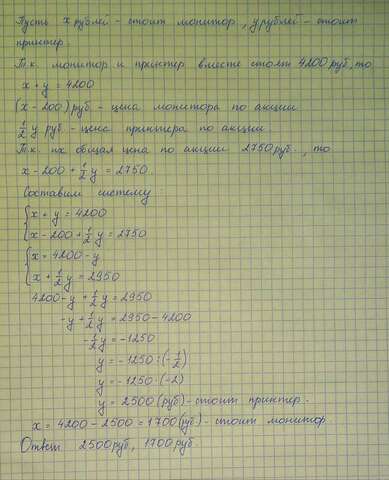 Пусть x рублей - стоит монитор, y рублей - стоит
принтер.
Т.к. монитор и принтер вместе стоят 4200 руб, то
x + y = 4200
(x - 200) руб - цена монитора по акции
1/2 y руб - цена принтера по акции.
Т.к. их общая цена по акции 2750 руб., то
x - 200 + 1/2 y = 2750.
Составим систему
{x + y = 4200
{x - 200 + 1/2 y = 2750
{x = 4200 - y
{x + 1/2 y = 2950
4200 - y + 1/2 y = 2950
-y + 1/2 y = 2950 - 4200
-1/2 y = -1250
y = -1250 : (-1/2)
y = -1250 · (-2)
y = 2500 (руб) - стоит принтер.
x = 4200 - 2500 = 1700 (руб) - стоит монитор.
Ответ 2500 руб., 1700 руб.